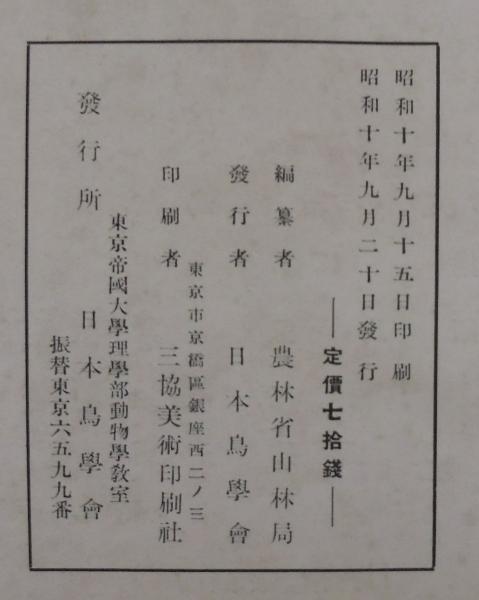 昭和十年九月十五日印刷
昭和十年九月二十日發行
定價七拾錢
編纂者 農林省山林局
發行者 日本鳥學會
東京市京橋區銀座西二ノ三
印刷者 三協美術印刷社
東京帝國大學理學部動物學敎室
發行所 日本鳥學會
振替東京六五九九番